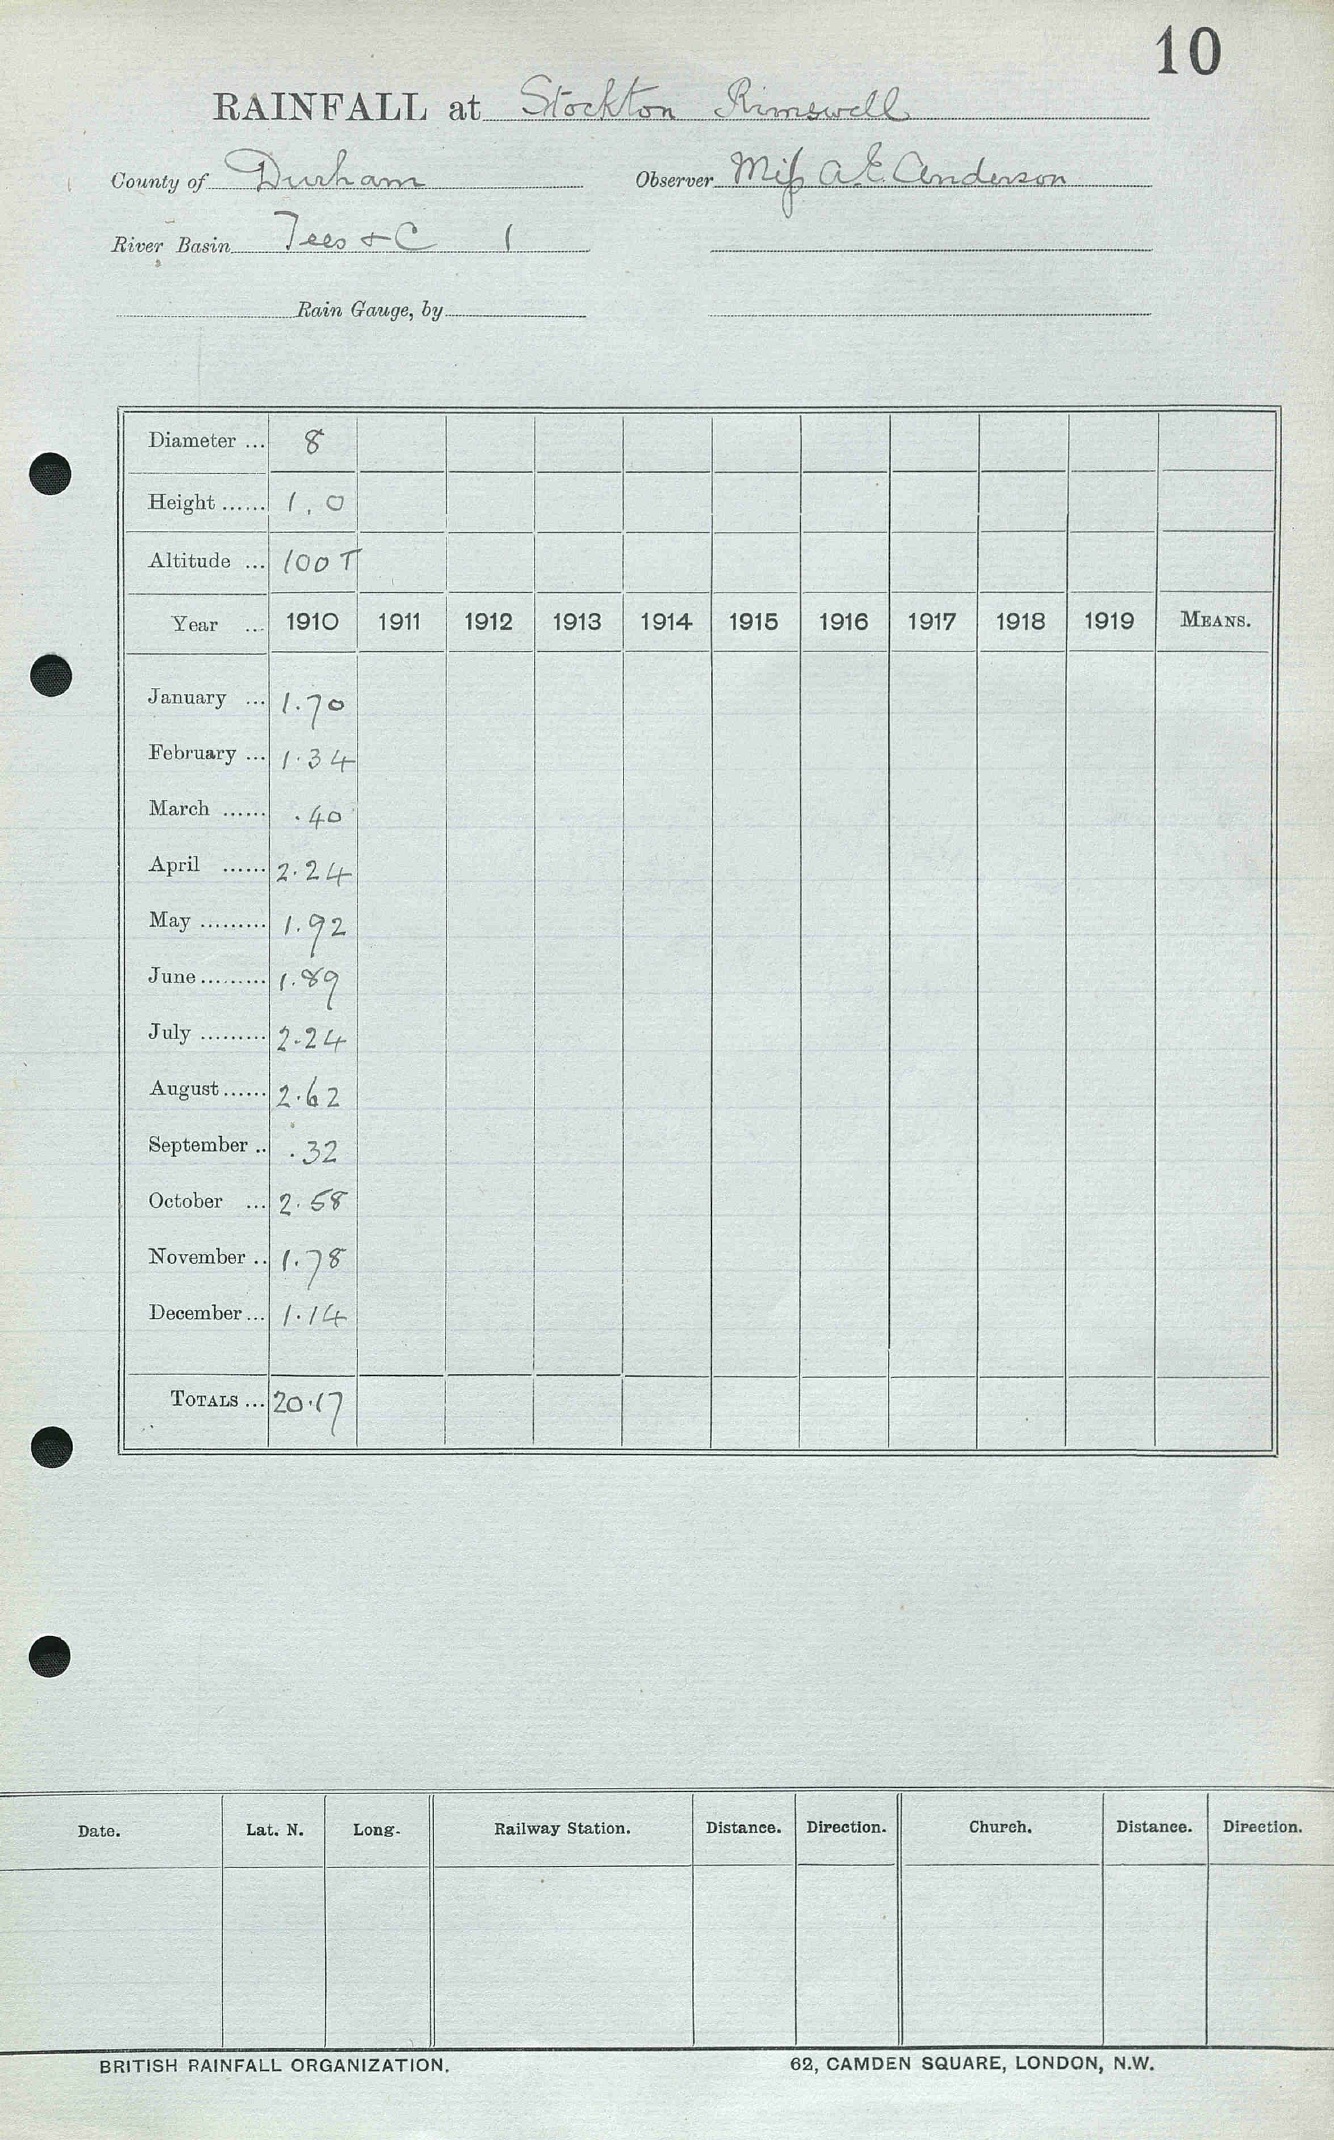 10
RAINFALL at Stockton Rimswell
County of Durham Observer Miss A.E. Anderson
River Basin Tees & C 1
Rain Gauge, by
Diameter ... 8
Height ...... 1.0
Altitude ... 100 T
Year ... 1910 1911 1912 1913 1914 1915 1916 1917 1918 1919 MEANS.
January ... 1.70
February ... 1.34
March ...... .40
April ...... 2.24
May ......... 1.92
June ......... 1.89
July ......... 2.24
August ...... 2.62
September .. .32
October ... 2.58
November .. 1.78
December ... 1.14
TOTALS ... 20.17
Date. Lat. N. Long. Railway Station. Distance. Direction. Church. Distance. Direction.
BRITISH RAINFALL ORGANIZATION. 62, CAMDEN SQUARE, LONDON, N.W.